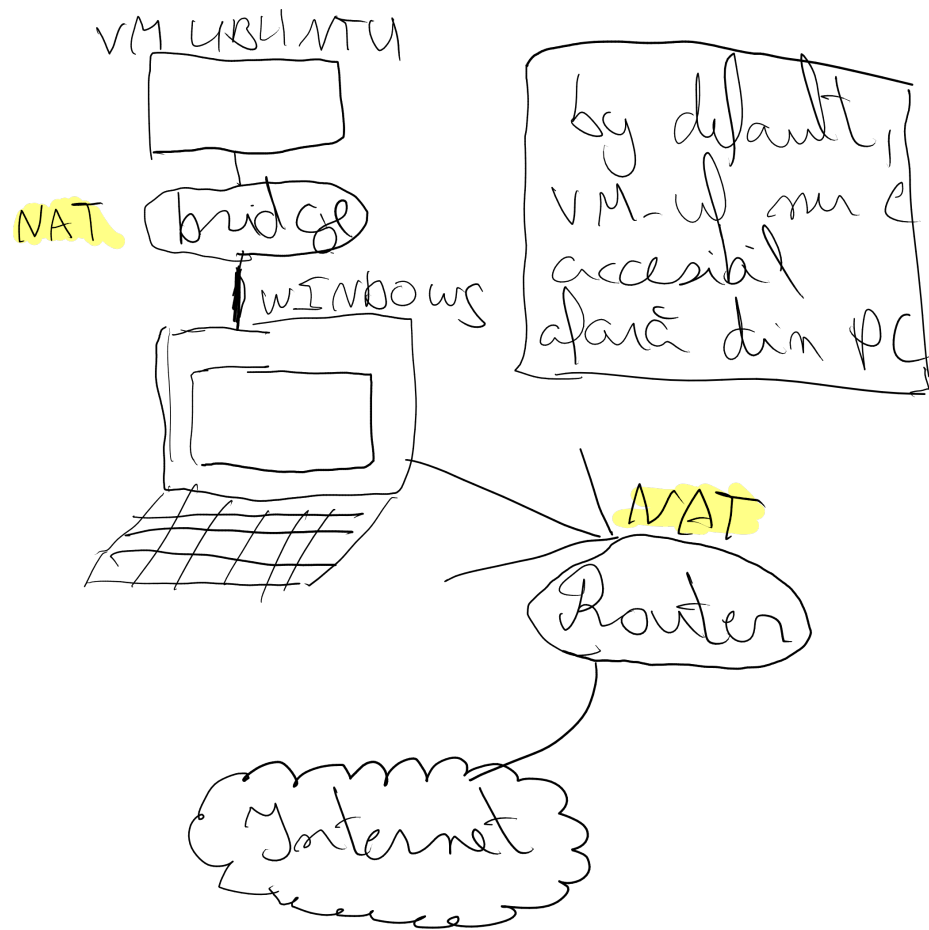 VM UBUNTU
NAT
bridge
WINDOWS
by default,
VM-ul nu e
accesibil
afară din PC
NAT
Router
Internet